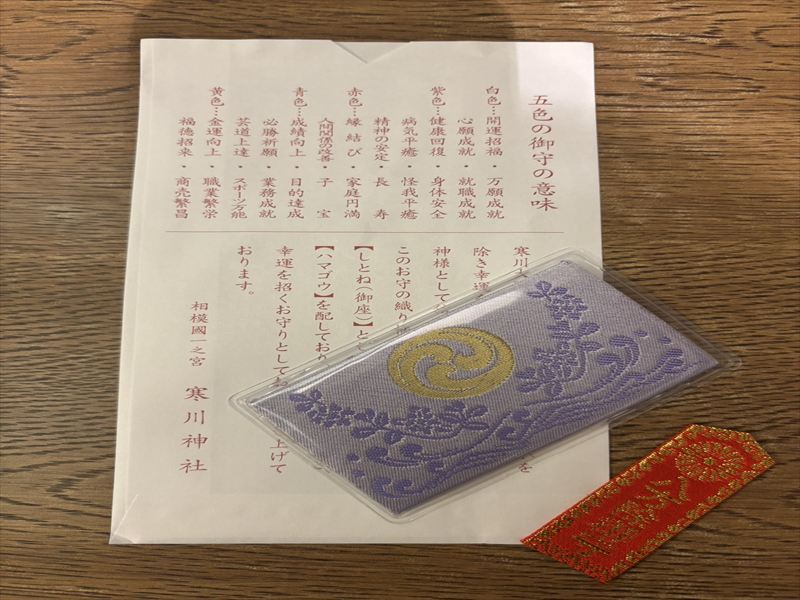 五色の御守の意味
白色…開運招福・万願成就
心願成就・就職成就
紫色…健康回復・身体安全
病気平癒・怪我平癒
精神の安定・長寿
赤色…縁結び・家庭円満
人間関係の改善・子宝
青色…成績向上・目的達成
必勝祈願・業務成就
芸道上達・スポーツ万能
黄色…金運向上・職業繁栄
福徳招来・商売繁昌
寒川
除き幸運
神様として
このお守の織り
【しとね(御座)】と
【ハマゴウ】を配しており
幸運を招くお守りとしてお 上げて
おります。
相模國一之宮
寒川神社